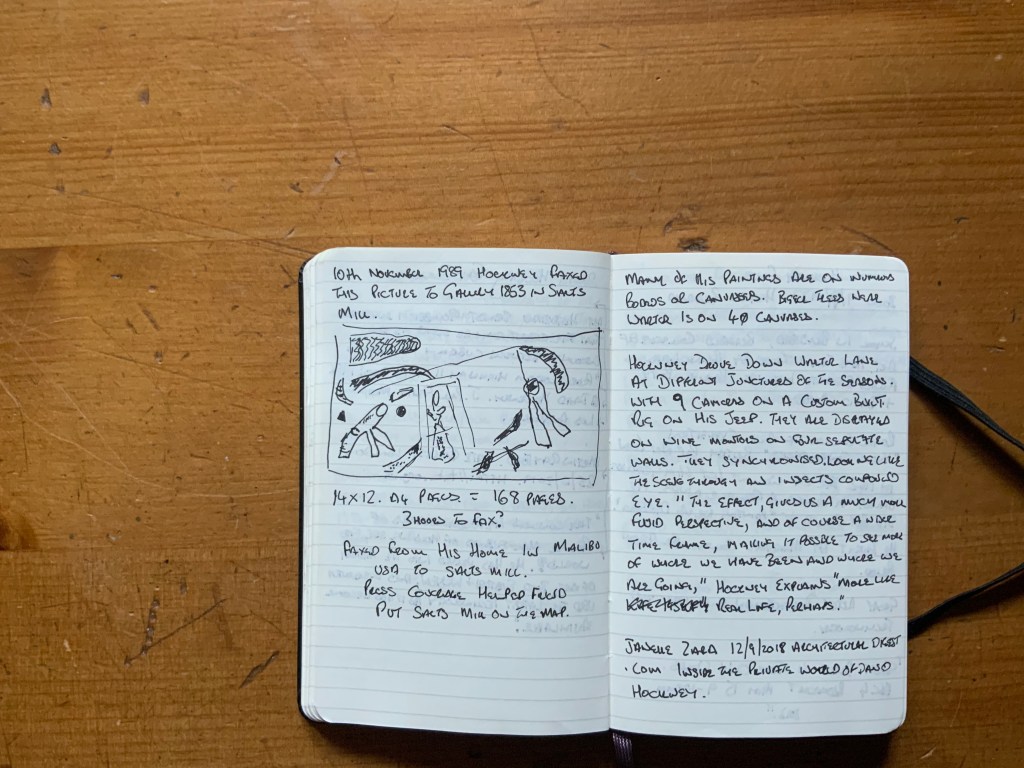 10th November 1989 Hockney Faxed
This Picture to Gallery 1853 in Salts
Mill.
14 x 12. A4 Pages. = 168 pages.
3 hours to Fax?
Faxed from His Home in Malibo
USA to Salts Mill.
Press Coverage Helped
Put Salts Mill on the Map.
Many of His Paintings are on
Boards or Canvasses. Bigger Trees Near
Warter is on 40 Canvases.
Hockney Drove Down Warter Lane
at Different Junctures of the Seasons.
With 9 Cameras on a Custom Built
Rig on His Jeep. They are Displayed
on Nine Monitors on Four Seperate
Walls. They Synchronised. Looking like
the scene through an Insects Compound
Eye. "The Effect, Gives us a much more
Fluid Perspective, and of Course a
Time Frame, making it Possible to see more
of where we have been and where we
are Going," Hockney Explains "More like
Real Life, Perhaps."
Janelle Zara 12/9/2018 Architectural Digest
.com Inside the Private World of David
Hockney.